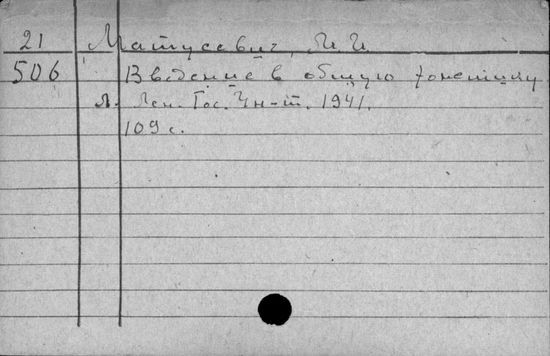 21 Матусевич, М.И.
506 Введение в общую фонетику
Л. Лен. Гос. Ун-т. 1941.
109 с.